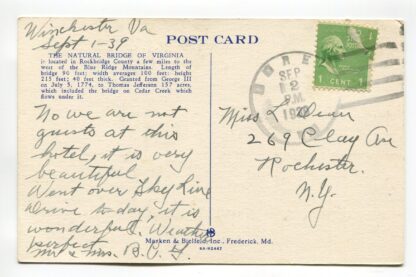 Winchester Va
Sept - 39
THE NATURAL BRIDGE OF VIRGINIA
is located in Rockbridge County a few miles to the
west of the Blue Ridge Mountains. Length of
bridge 90 feet; width averages 100 feet; height
215 feet; 40 feet thick. Granted from George III
on July 5, 1774, to Thomas Jefferson 157 acres,
which included the bridge on Cedar Creek which
flows under it.
No we are not
guests at this
hotel, it is very
beautiful
Went over Sky Line
Drive to-day, it is
wonderful. Weather
perfect
Mr & Mrs. B. C. G.
POST CARD
SEP
2
P.M.
1 CENT 1
Miss L Dean
269 Clay Av
Rochester
N.Y.
Marken & Bielfeld, Inc., Frederick, Md.